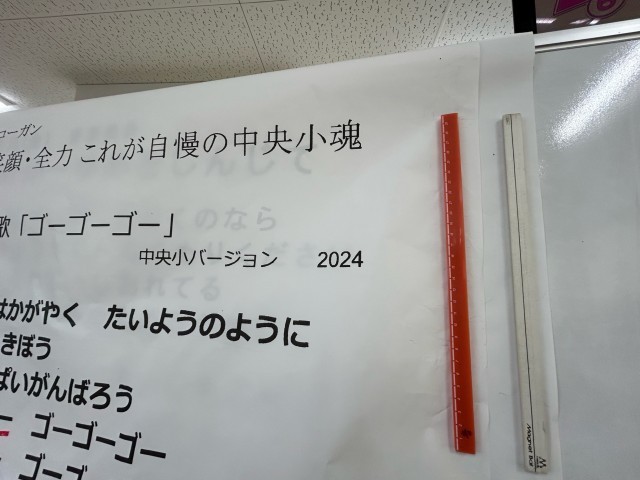 ローガン
笑顔・全力 これが自慢の中央小魂
歌「ゴーゴーゴー」
中央小バージョン 2024
はかがやく たいようのように
きぼう
ぱいがんばろう
ー ゴーゴーゴー
ゴーゴ
Magnet Bar